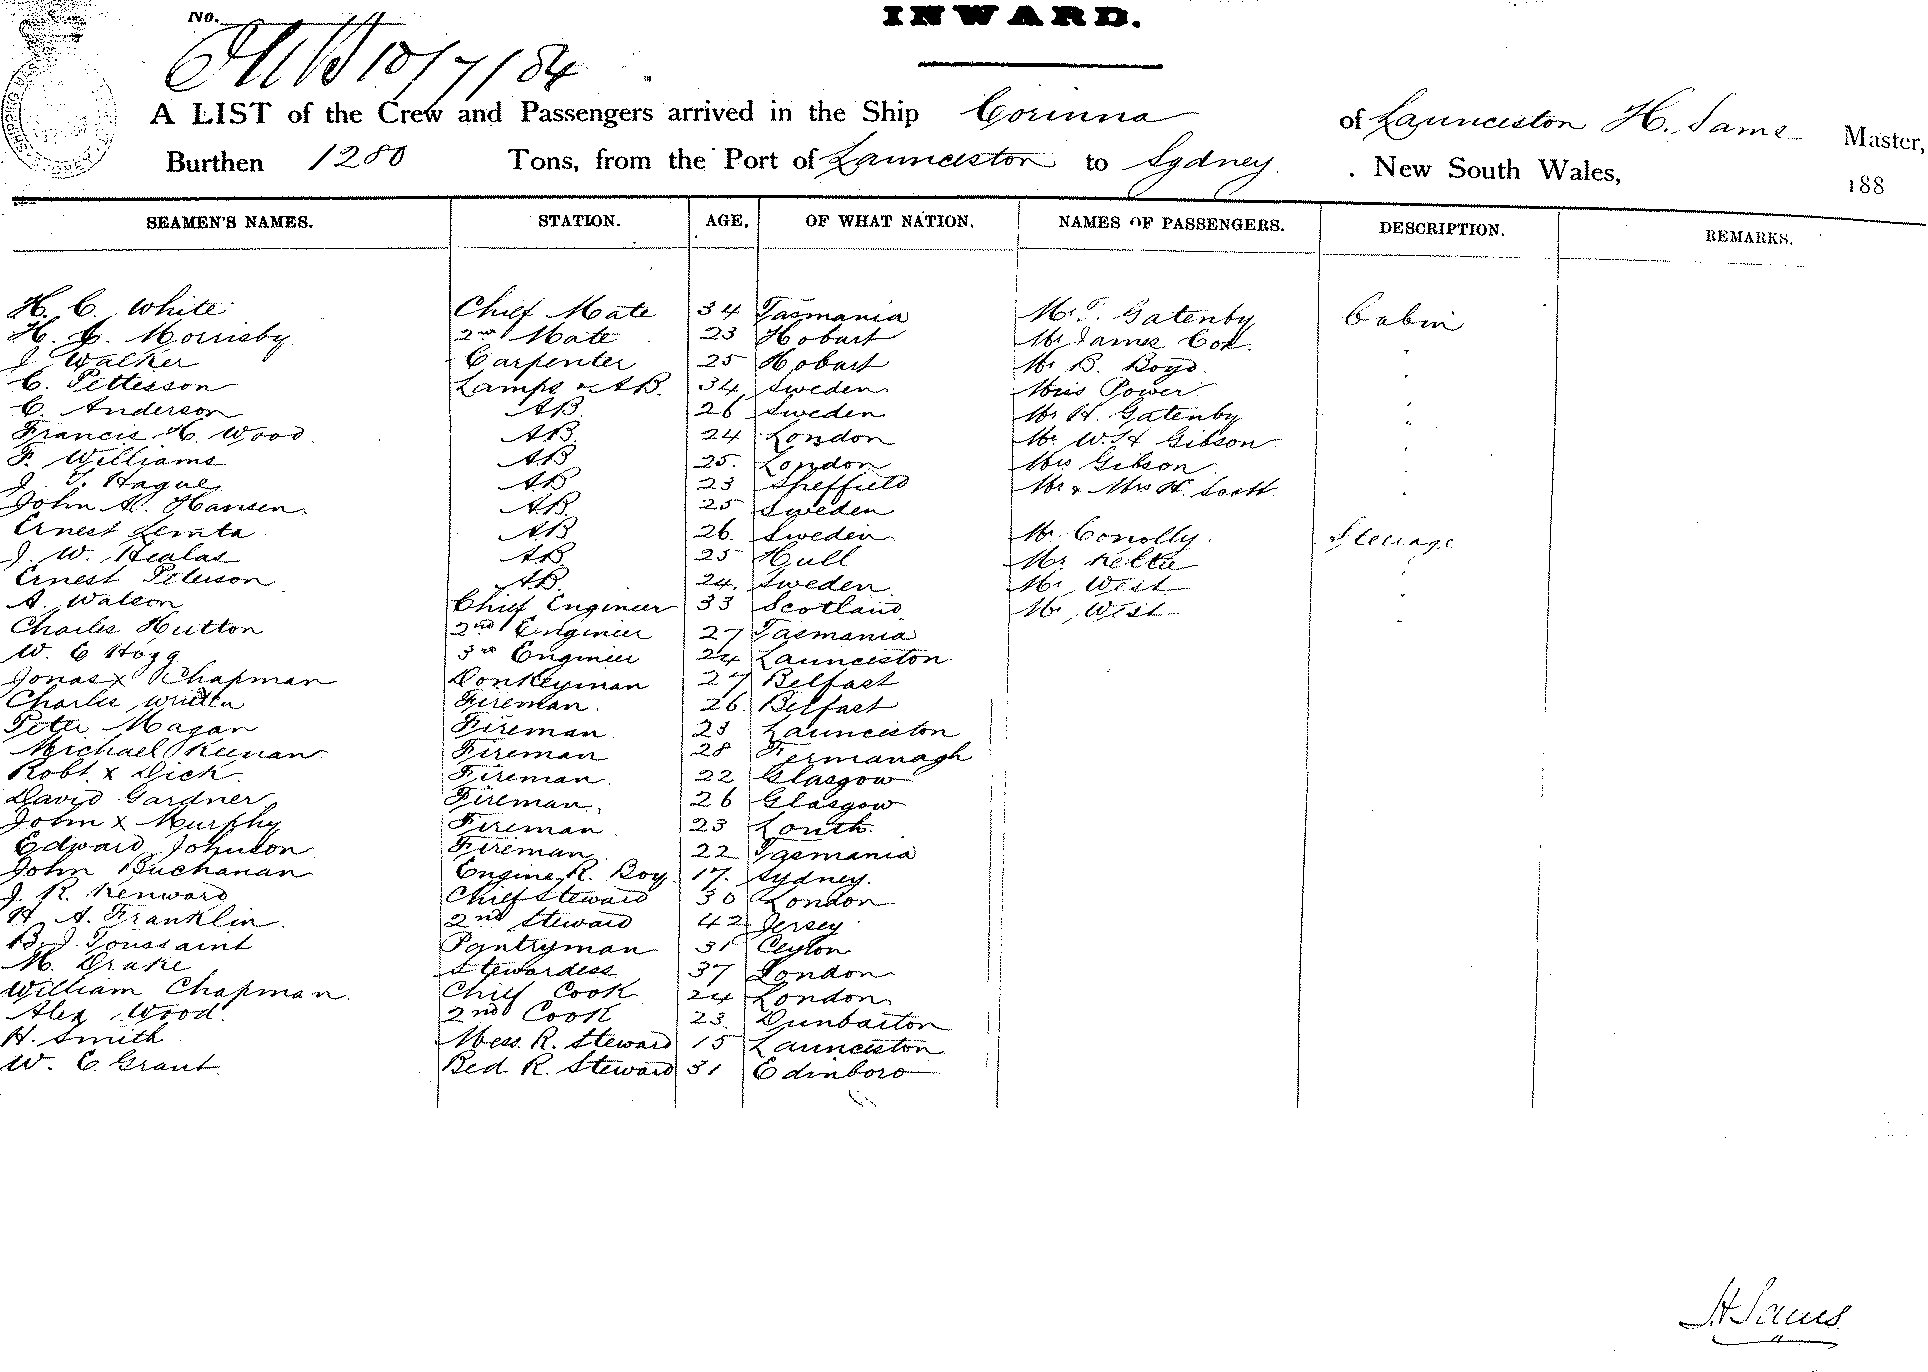 INWARD.
No.
10/7/84
A LIST of the Crew and Passengers arrived in the Ship Corinna of Launceston H. Sams Master,
Burthen 1280 Tons, from the Port of Launceston to Sydney. New South Wales, 188
SEAMEN'S NAMES. STATION. AGE. OF WHAT NATION. NAMES OF PASSENGERS. DESCRIPTION. REMARKS.
H. C. White Chief Mate 34 Tasmania Mr T. Gatenby Cabin
H. Morrisby 2nd Mate 23 Hobart Mr James Cox "
J Walker Carpenter 25 Hobart Mr B. Boyd "
C. Pettesson Lamps & AB. 34 Sweden Miss Power "
C. Anderson AB. 26 Sweden Mr H. Gatenby "
Francis H. Wood AB 24 London Mr W. H Gibson "
F. Williams AB 25. London Mrs Gibson "
J. Hague AB 23 Sheffield Mr & Mrs H. Scott "
John A. Hansen. AB. 25 Sweden
Ernest AB 26. Sweden Mr Conolly. Steerage
J. W. Healas AB 25 Hull Mr "
Ernest Peterson AB. 24. Sweden Mr West "
A. Watson Chief Engineer 33 Scotland Mr West "
Charles Hutton 2nd Engineer 27 Tasmania
W. C Hogg 3rd Engineer 24 Launceston
Jonas x Chapman Donkeyman 27 Belfast
Charles Fireman. 26. Belfast
Peter Magan Fireman 23 Launceston
Michael Keenan Fireman 28 Fermanagh
Robt. x Dick. Fireman 22 Glasgow
David Gardner Fireman. 26 Glasgow
John x Murphy Fireman 23 Louth.
Edward Johnson Fireman 22 Tasmania
John Buchanan Engine R. Boy 17. Sydney.
J. R. Kenward Chief Steward 30 London
H. A. Franklin 2nd Steward 42 Jersey
B. J. Toussaint Pantryman 31 Ceylon
M. Drake Stewardess 37 London
William Chapman. Chief Cook 24 London
Alex Wood. 2nd Cook 23 Dunbarton
H. Smith Mess. R. Steward 15 Launceston
W. C. Grant Bed. R. Steward 31 Edinboro
H Sams